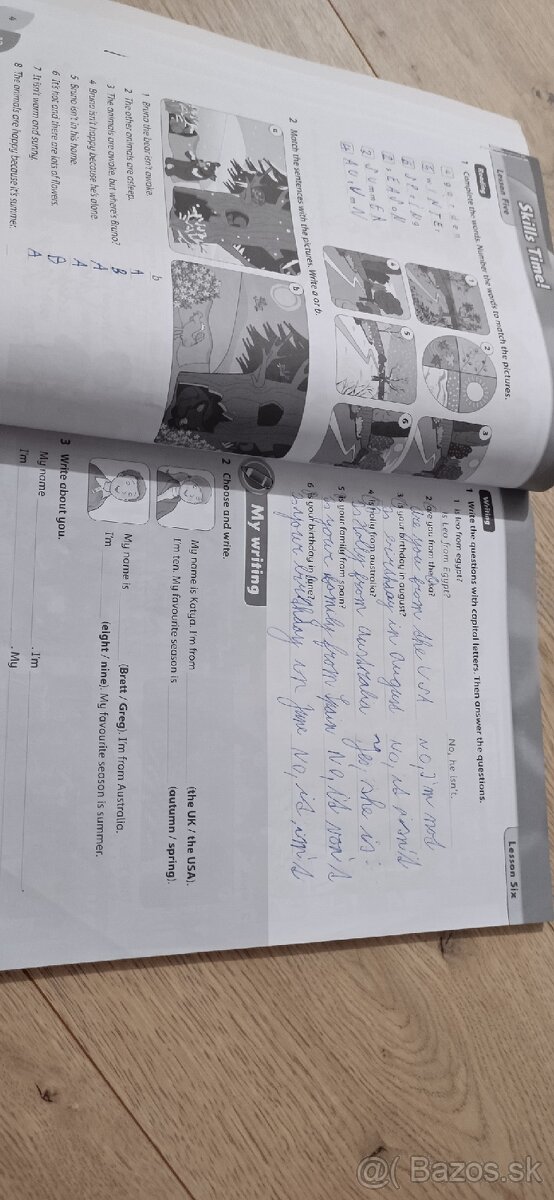 Lesson Five
Skills Time!
Reading
1 Complete the words. Number the words to match the pictures.
2 Match the sentences with the pictures. Write a or b.
a
b
1 Bruno the bear isn't awake. b
2 The other animals are asleep. A
3 The animals are awake, but where's Bruno? B
4 Bruno isn't happy because he's alone. A
5 Bruno isn't in his home. A
6 It's hot and there are lots of flowers. B
7 It isn't warm and sunny. A
8 The animals are happy because it's summer.
4
Lesson Six
Writing
1 Write the questions with capital letters. Then answer the questions.
1 is leo from egypt?
Is Leo from Egypt? No, he isn't.
2 are you from the usa?
Are you from the USA No, I'm not
3 is your birthday in august?
birthday in august No, it isn't
4 is holly from australia?
Is holly from australia yes, she is.
5 is your family from spain?
Is your family from Spain No, it
6 is your birthday in june?
Is your in June No, it
My writing
2 Choose and write.
My name is Katya. I'm from (the UK / the USA).
I'm ten. My favourite season is (autumn / spring).
My name is (Brett / Greg). I'm from Australia.
I'm (eight / nine). My favourite season is summer.
3 Write about you.
My name . I'm .
I'm . My .
@( Bazos.sk